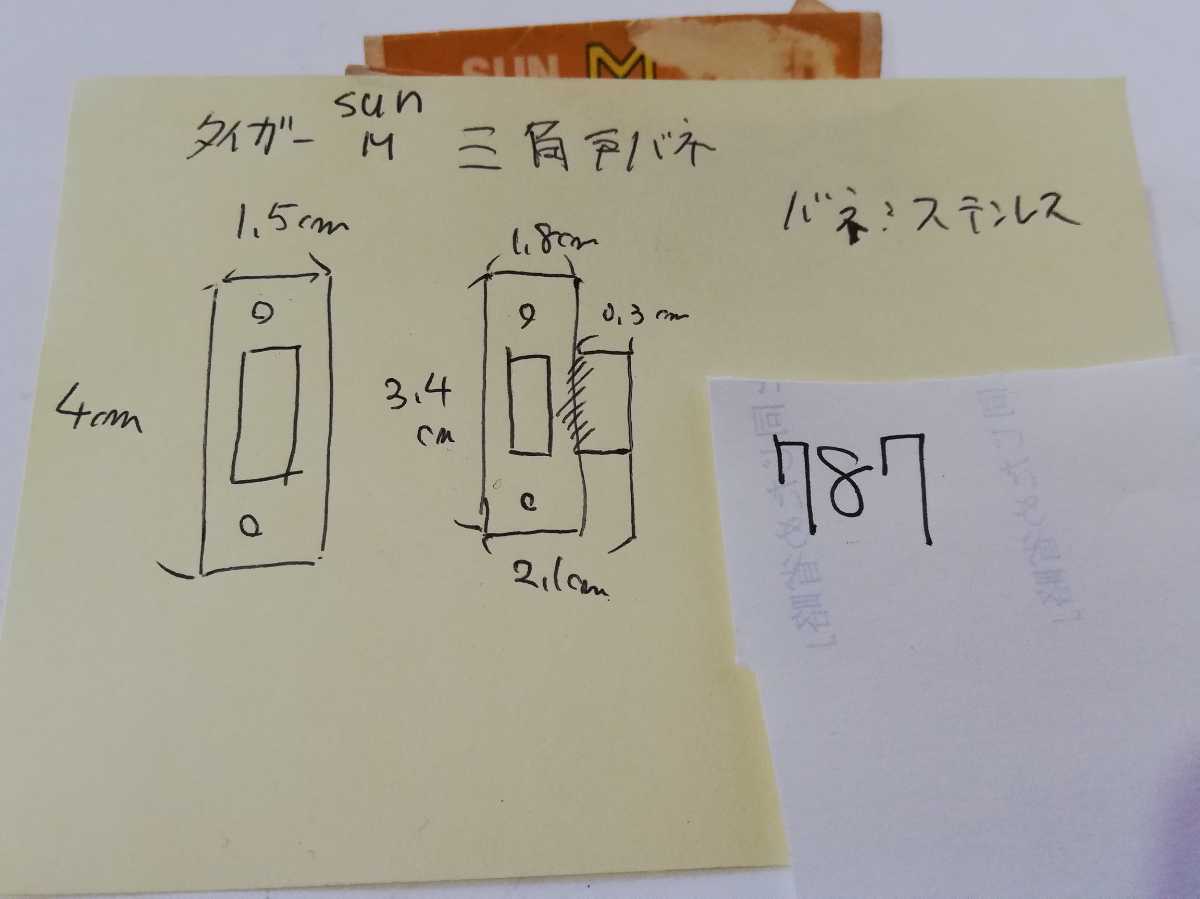 SUN M
sun
タイガー M 三角戸バネ
バネ:ステンレス
1.5cm
4cm
1.8cm
0.3cm
3.4
cm
2.1cm
787